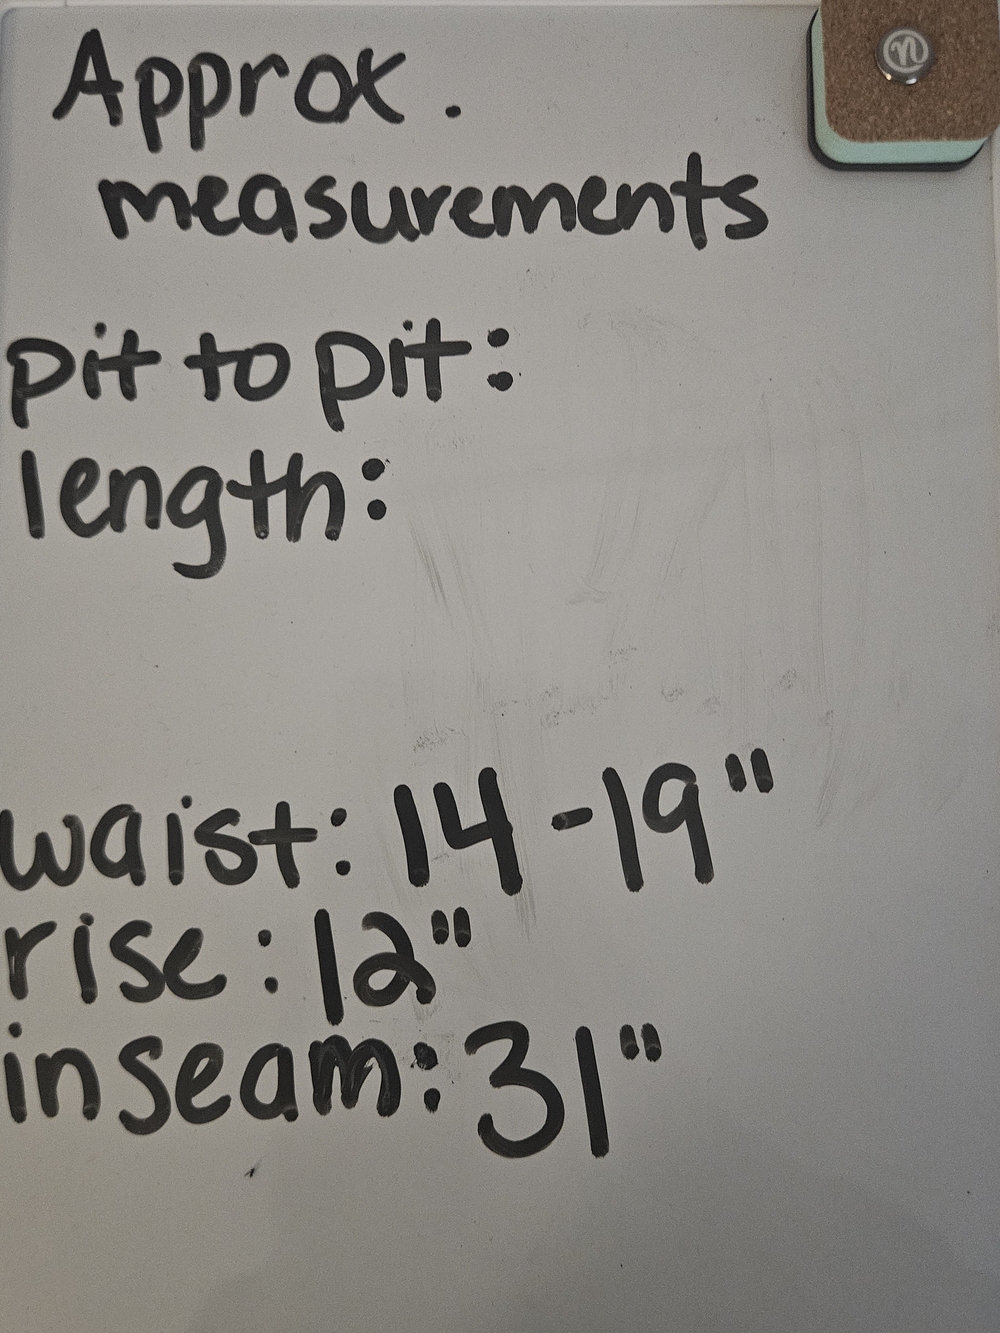 Approx.
measurements
pit to pit:
length:
waist: 14-19"
rise: 12"
inseam: 31"